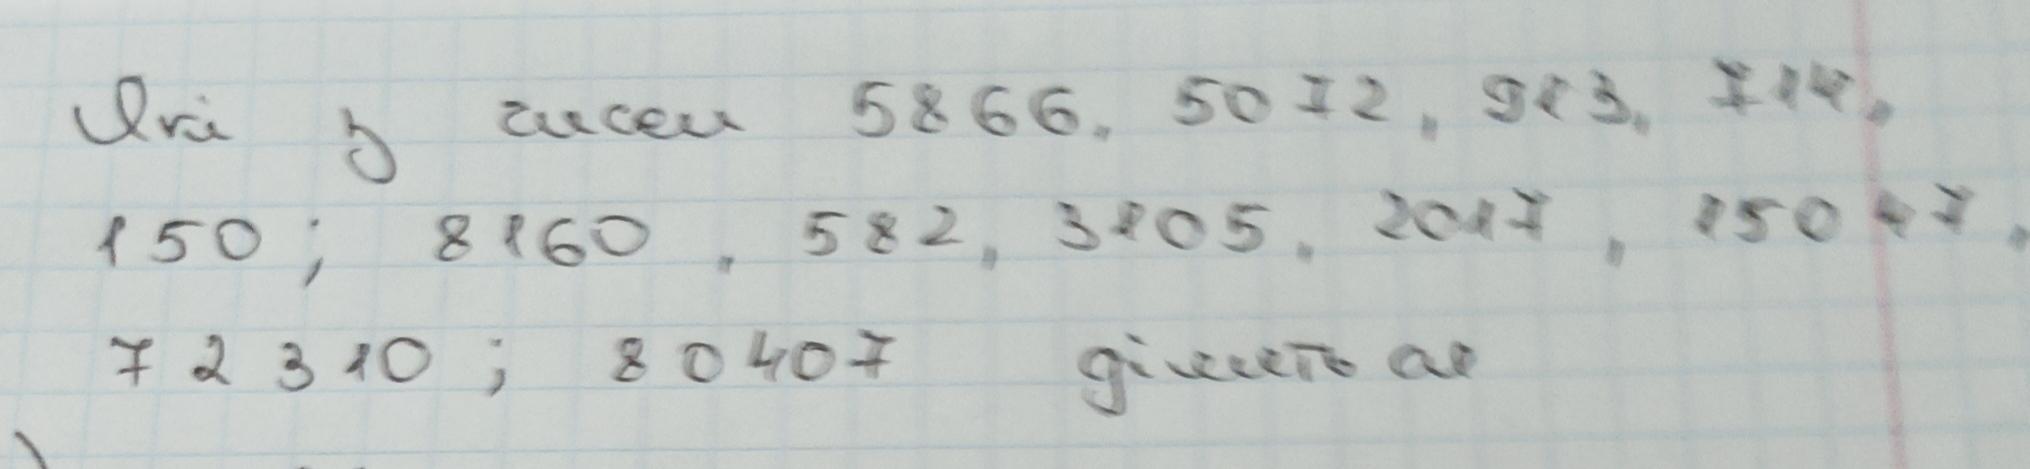 Які з чисел 5866, 5072, 913, 714,
150; 8160, 582, 3105, 2017, 15047,
72310; 80407 діляться